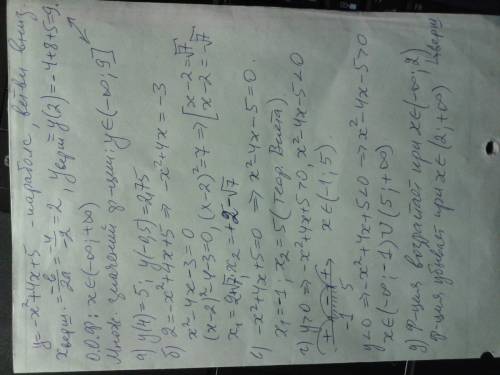 y=-x²+4x+5 - парабола, ветви вниз.
xверш. = -b/2a = -4/-2 = 2, yверш = y(2) = -4+8+5=9.
О.О.Ф: x∈(-∞;+∞)
Множ. значений ф-ции: y∈(-∞;9]
а) y(4)=5; y(-0,5)=2,75
б) 2=-x²+4x+5 ⇒ -x²+4x=-3
x²-4x-3=0
(x-2)²-4-3=0, (x-2)²=7 ⇒ [x-2=√7
x-2=√7
x₁=2+√7; x₂=+2-√7
в) -x²+4x+5=0 ⇒ x²-4x-5=0.
x₁=-1; x₂=5 (теор. Виета)
г) y>0 ⇒ -x²+4x+5>0, x²-4x-5<0
+ - +
-1 5 x∈(1;5).
y<0 ⇒ -x²+4x+5<0 → x²-4x-5>0
x∈(-∞;-1)∪(5;+∞)
д) ф-ция возрастает при x∈(-∞;2)
ф-ция убывает при x∈(2;+∞)